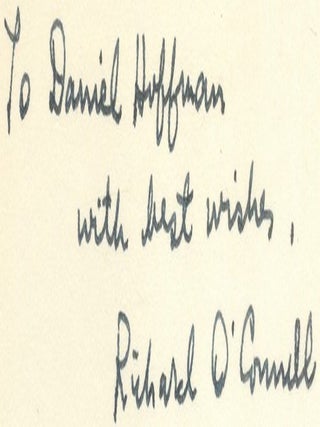 To Daniel Hoffman
with best wishes,
Richard O'Connell